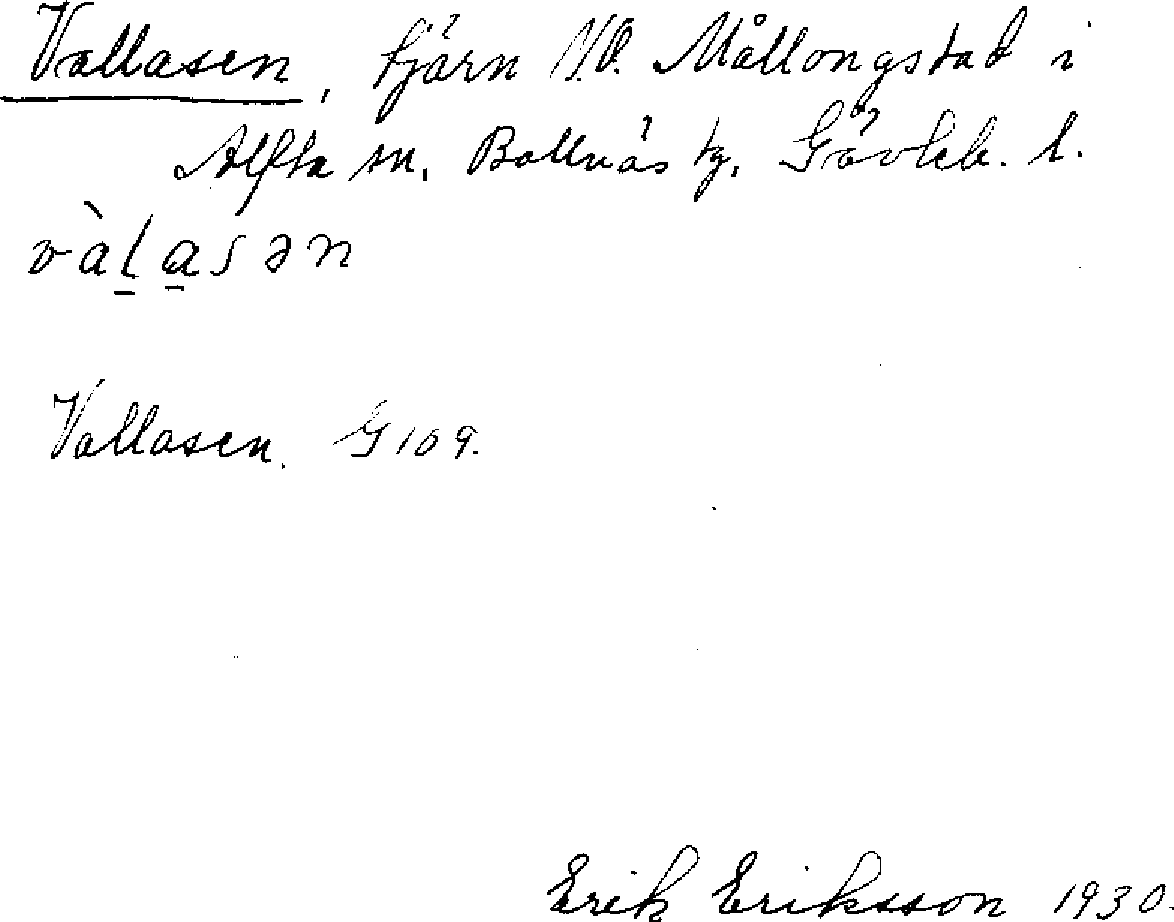 Vallasen, tjärn V.O. Mållongstad i
Alfta sn, Bollnäs tg, Gävleb. l.
vàlasən
Vallasen. G 109.
Erik Eriksson 1930.